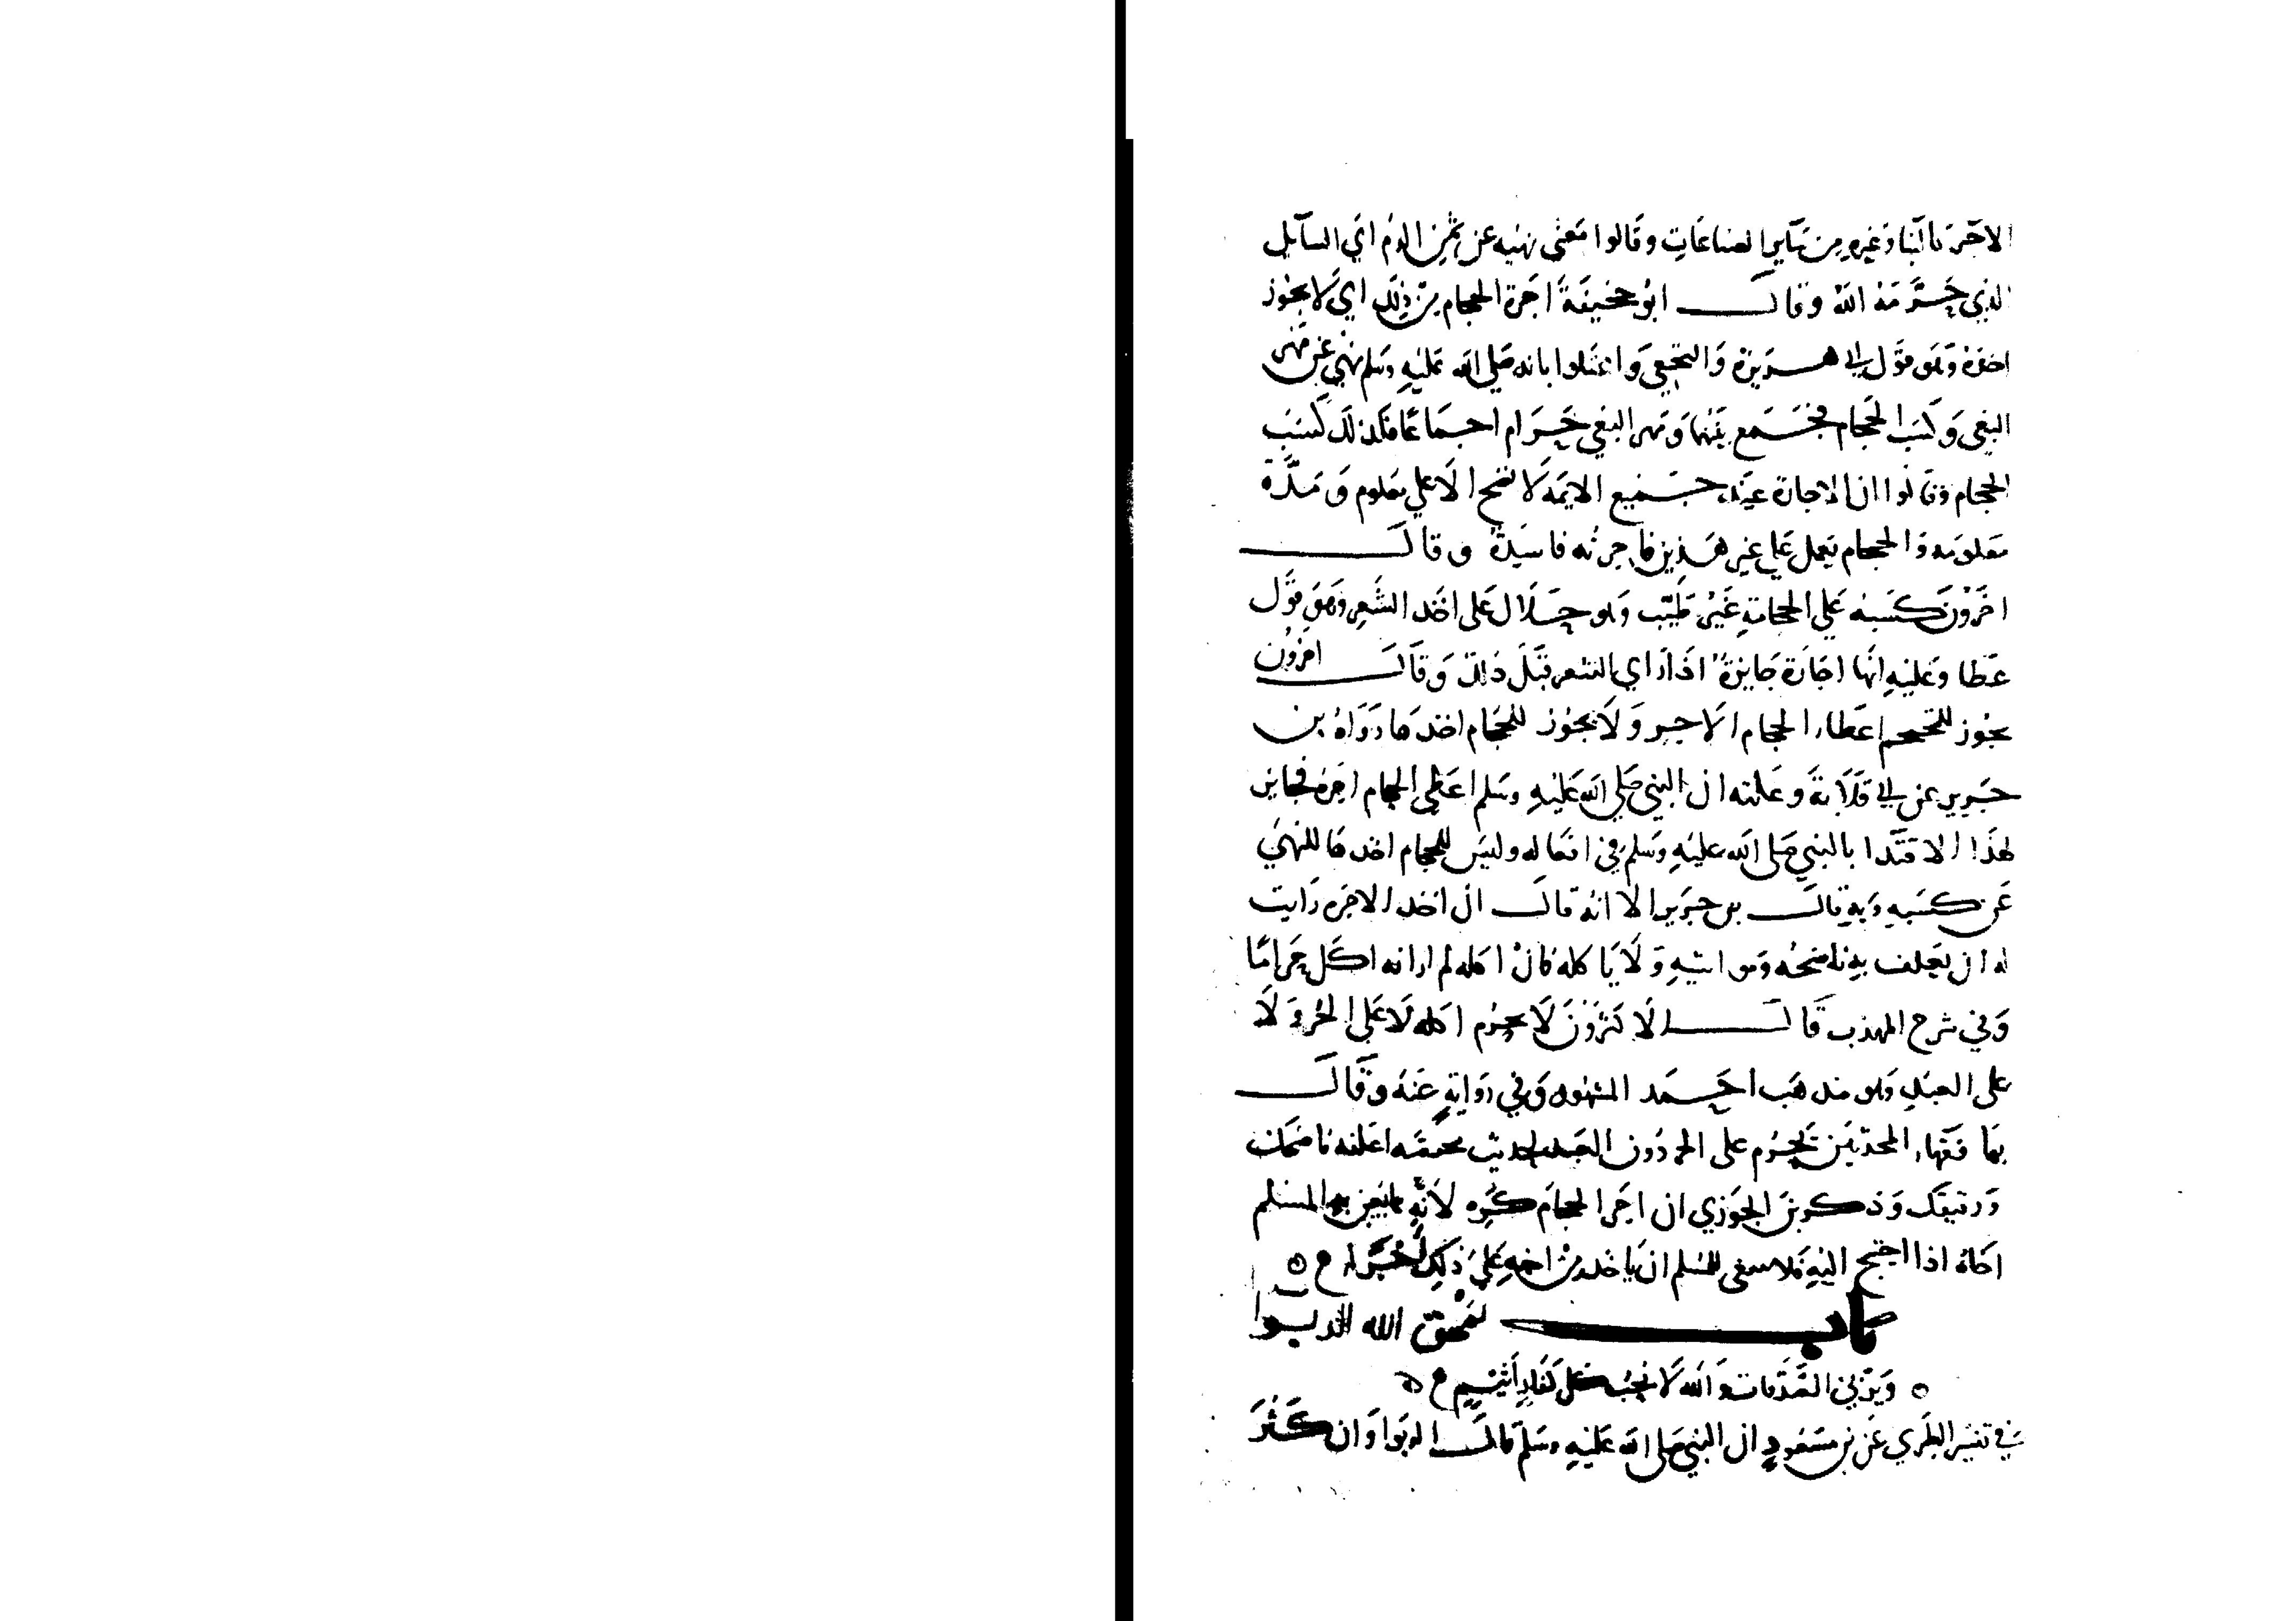 الاجر كالبنا وغيره من ساير الصناعات وقالوا معنى نهيه عن ثمن الدم اي السايل
الذي حرمه الله وقال ابو حنيفة اجرة الحجام من ذلك اي لا يجوز
اخذه وهو قول ابي هريرة والنخعي واعتلوا بانه صلى الله عليه وسلم نهى عن مهر
البغي وكسب الحجام فجمع بينهما ومهر البغي حرام اجماعا فكذلك كسب
الحجام وقالوا ان الاجارة عند جميع الايمة لا تصح الا على معلوم ومدة
معلومه والحجام يعمل على غير هذين فاجرته فاسدة وقال
اخرون كسبه على الحجامة غير طيب وهو حلال على اخذ الشعر وهو قول
عطا وعليه انها اجارة جايزة اذا راي الشعر قبل ذلك وقال اخرون
يجوز للمحتجم اعطاء الحجام الاجر ولا يجوز للحجام اخذها رواه بن
جرير عن ابي قلابة وعلته ان النبي صلى الله عليه وسلم اعطى الحجام اجره فجايز
لهذا الاقتدا بالنبي صلى الله عليه وسلم في افعاله وليس للحجام اخذها للنهي
عن كسبه وبه قال بن جرير الا انه قال ان اخذ الاجره رايت
له ان يعلف به ناضحه ومواشيه ولا ياكله فان اكله لم ار انه اكل حراما
وفي شرح المهذب قال الاكثرون لا يحرم اكله لا على الحر ولا
على العبد وهو مذهب احمد المشهور وفي رواية عنه وقال
بها فقهاء المحدثين يحرم على الحر دون العبد لحديث اعلفه ناضحك
ورقيقك وذكر بن الجوزي ان اجر الحجام كره لانه المسلم
اخاه اذا احتيج اليه فلا ينبغي للمسلم ان ياخذ من اخيه على ذلك اجرا
باب يمحق الله الربوا
ويربي الصدقات والله لا يحب كل كفار اثيم
في تفسير الطبري عن بن مسعود ان النبي صلى الله عليه وسلم قال الربوا وان كثر